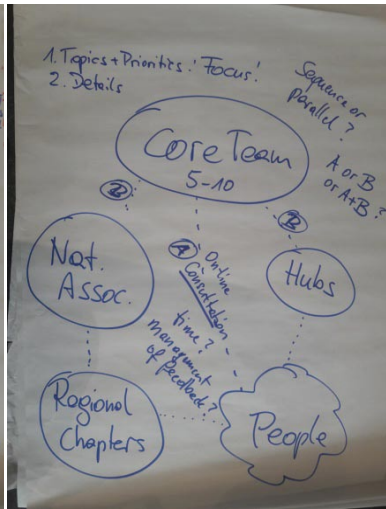 1. Topics + Priorities: 'Focus'!
2. Details
Sequence or
parallel?
A or B
or A+B?
Core Team
5-10
B
B
Nat.
Assoc.
A
Online
Consultation
time?
management
of feedback?
Hubs
Regional
Chapters
People